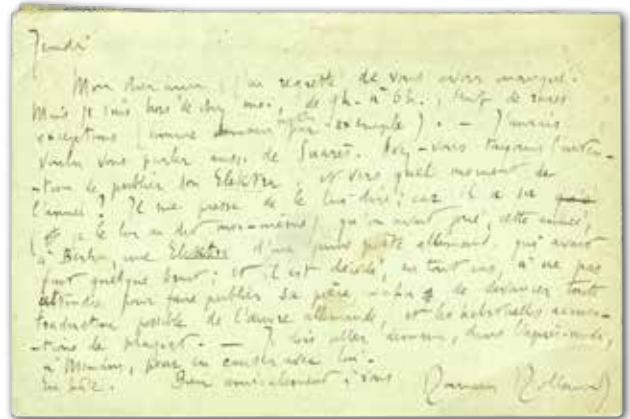 Jeudi
Mon cher ami, j'ai regretté de vous avoir manqué.
Mais je suis hors de chez moi, de 9h. à 6h., sauf de rares
exceptions (comme demain par exemple). — J'aurais
voulu vous parler aussi de Suarès. Avez-vous toujours l'inten-
-tion de publier son Elektra, et vers quel moment de
l'année ? Il me presse de le lui dire; car il a su
(je le lui ai dit moi-même) qu'on avait joué, cette année,
à Berlin, une Elektra d'un jeune poète allemand, qui avait
fait quelque bruit; et il est décidé, en tout cas, à ne pas
attendre pour faire publier sa pièce, afin de devancer toute
traduction possible de l'œuvre allemande, et les
-tions de plagiat. — Je dois aller demain, dans l'après-midi,
à , pour en causer avec lui.
En hâte. Bien amicalement à vous Romain Rolland